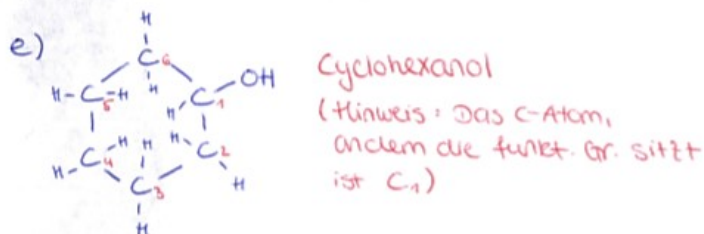 e)
H
C6
H
H-C5=H
C1-OH
H
H
C4-H
H
H-C2
H
H
C3
H
Cyclohexanol
(Hinweis: Das C-Atom,
andem die funkt. Gr. sitzt
ist C1)